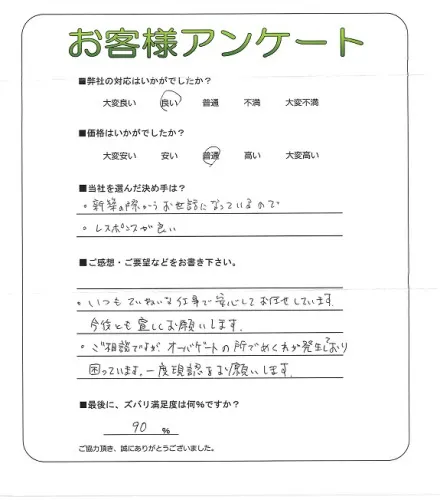 お客様アンケート
■弊社の対応はいかがでしたか？
大変良い 良い 普通 不満 大変不満
■価格はいかがでしたか？
大変安い 安い 普通 高い 大変高い
■当社を選んだ決め手は？
・新築の際からお世話になっているので
・レスポンスが良い
■ご感想・ご要望などをお書き下さい。
・いつもていねいな仕事で安心してお任せしています。
今後とも宜しくお願いします。
・ご相談ですが オーバーゲートの所でめくれが発生しており
困っています。一度現認をお願いします。
■最後に、ズバリ満足度は何％ですか？
90 ％
ご協力頂き、誠にありがとうございました。